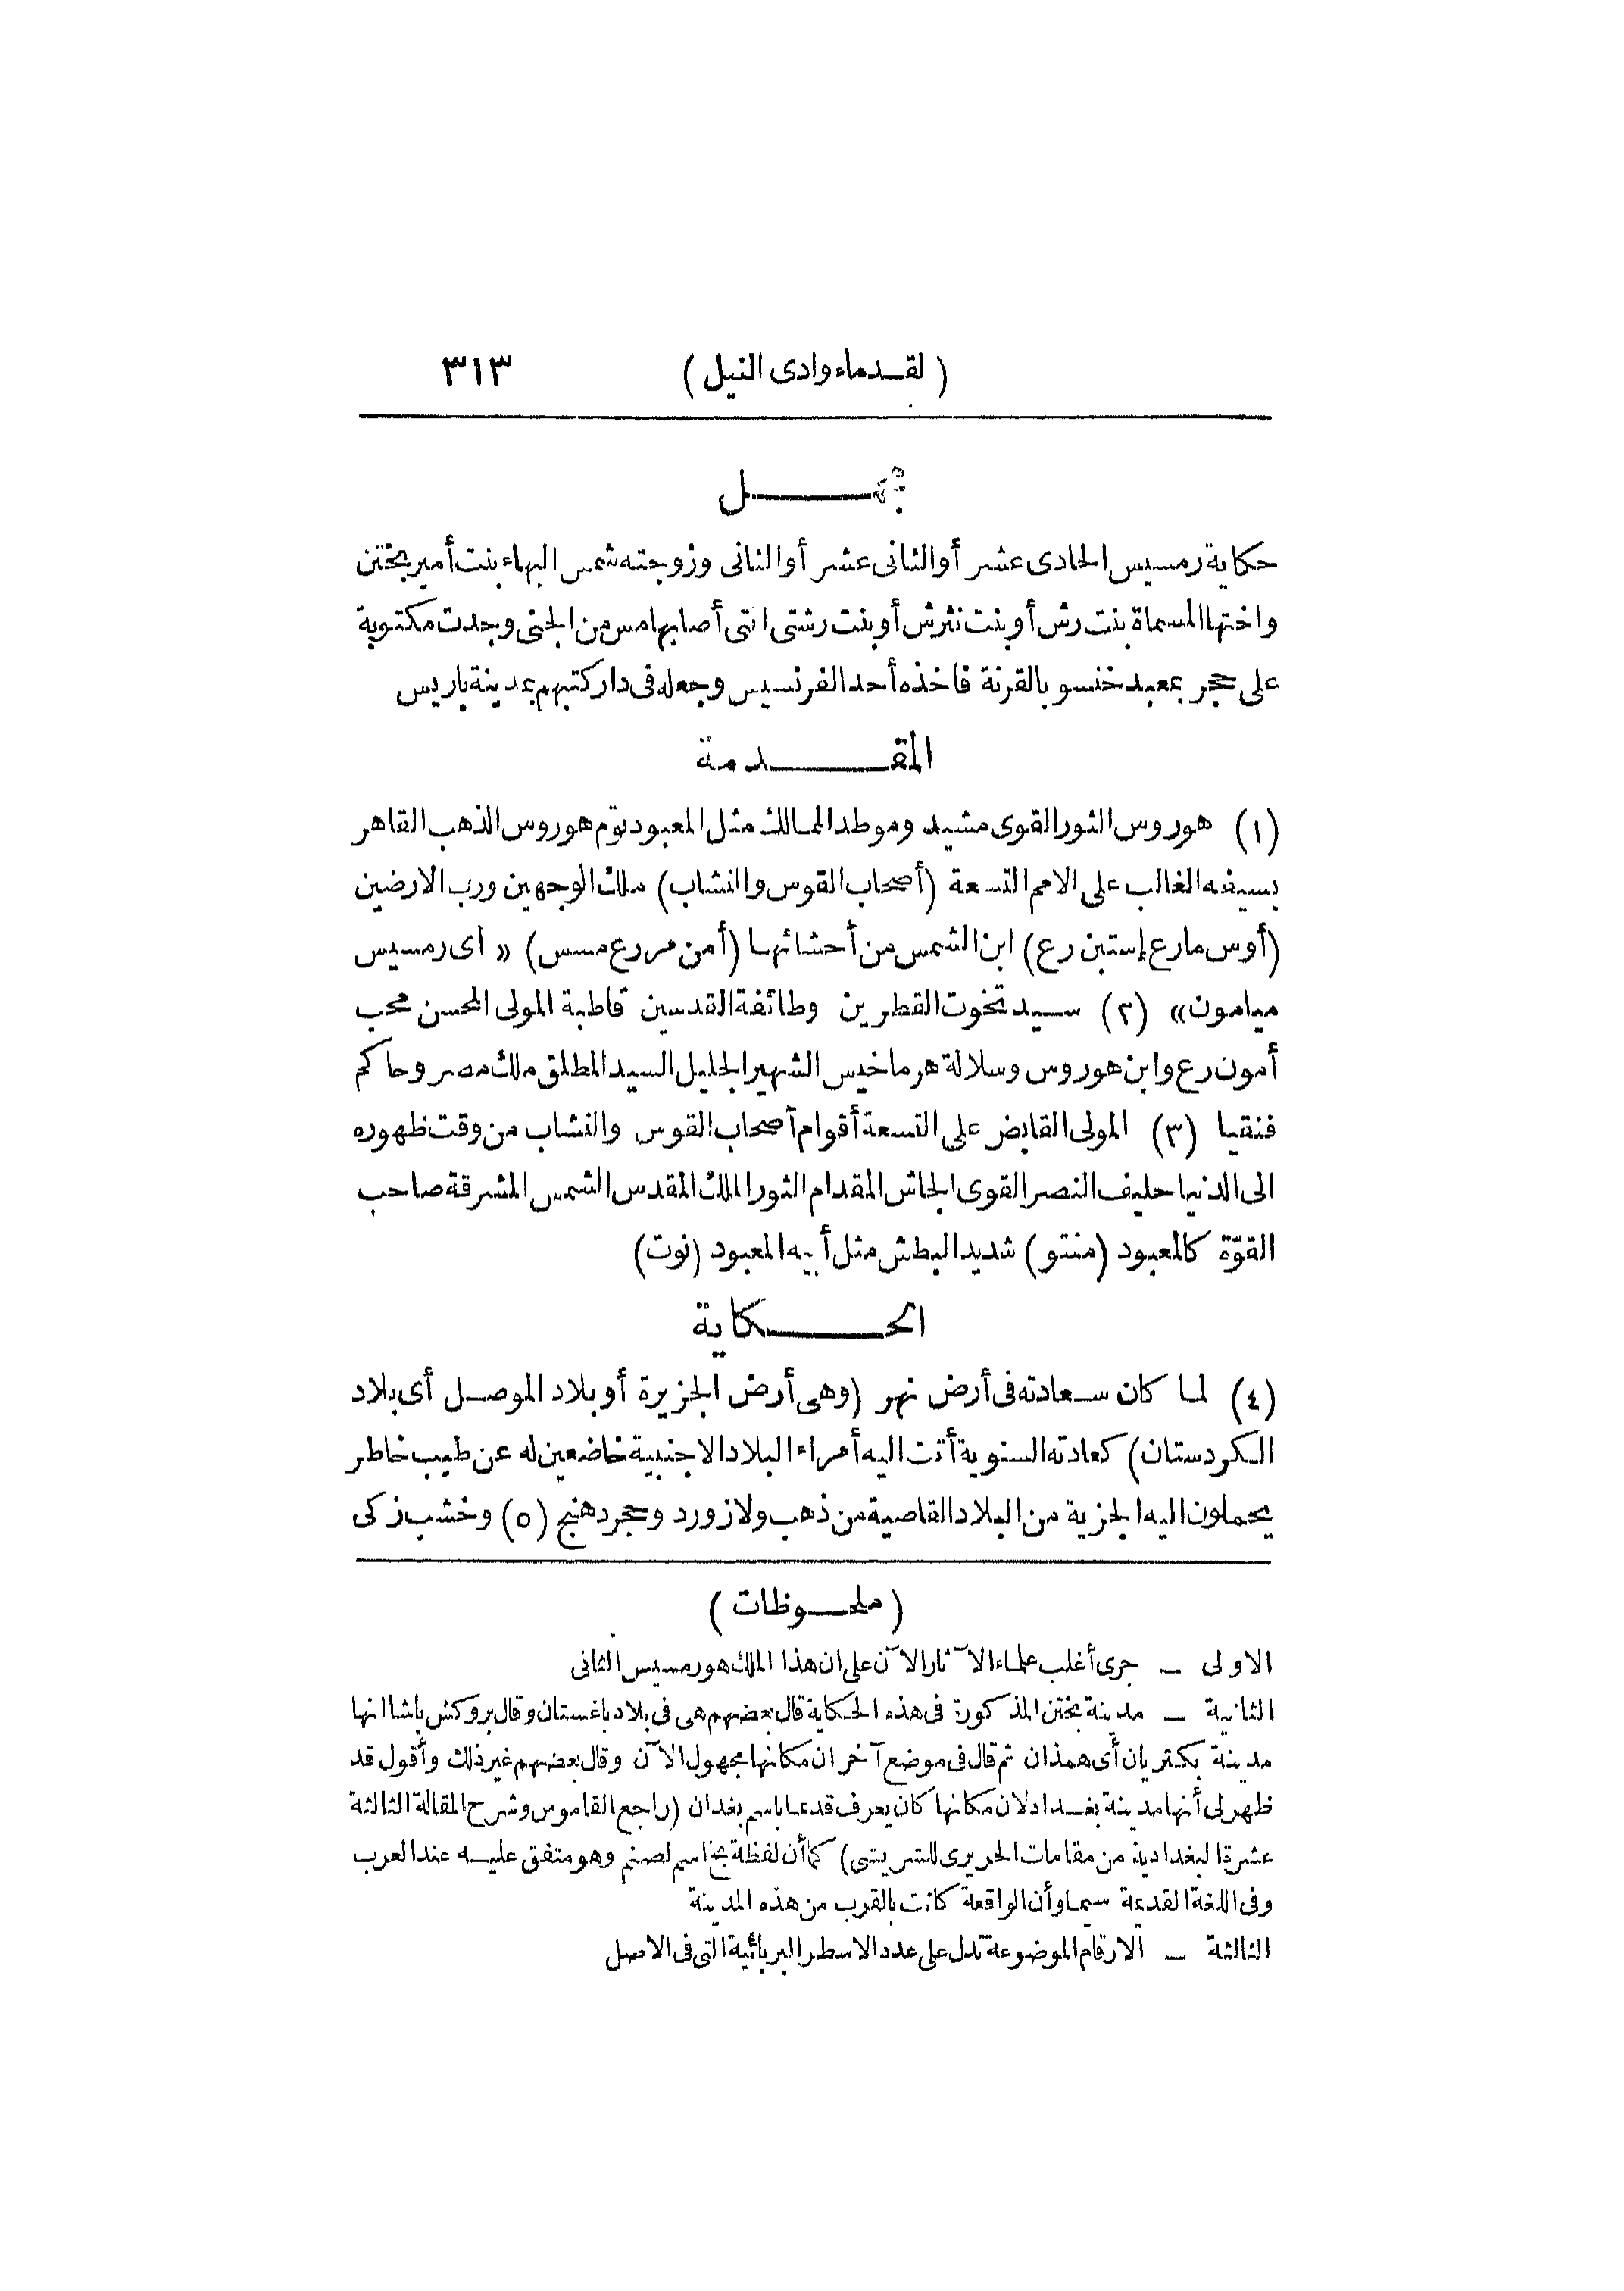 (لقدماء وادى النيل) ٣١٣
حكاية رمسيس الحادى عشر أو الثانى عشر أو الثانى وزوجته شمس البهاء بنت أمير بختن
واختها المسماة بنت رش أو بنت نثرش أو بنت رشتى التى أصابها مس من الجنى وجدت مكتوبة
على حجر بمعبد خنسو بالقرنة فاخذه أحد الفرنسيس وجعله فى دار كتبهم بمدينة باريس
المقدمة
(١) هوروس الثور القوى مشيد وموطد الممالك مثل المعبود توم هوروس الذهب القاهر
بسيفه الغالب على الامم التسعة (أصحاب القوس والنشاب) ملك الوجهين ورب الارضين
(أوس مارع إستبن رع) ابن الشمس من أحشائها (أمن مررع مسس) «أى رمسيس
ميامون» (٢) سيد تخوت القطرين وطائفة القدسين قاطبة المولى المحسن محب
أمون رع وابن هوروس وسلالة هرماخيس الشهير الجليل السيد المطلق ملك مصر وحاكم
فنقيا (٣) المولى القابض على التسعة أقوام أصحاب القوس والنشاب من وقت ظهوره
الى الدنيا حليف النصر القوى الجاش المقدام الثور الملك المقدس الشمس المشرقة صاحب
القوّة كالمعبود (منتو) شديد البطش مثل أبيه المعبود (نوت)
الحكاية
(٤) لما كان سعادته فى أرض نهر (وهى أرض الجزيرة أو بلاد الموصل أى بلاد
الكردستان) كعادته السنوية أتت اليه أمراء البلاد الاجنبية خاضعين له عن طيب خاطر
يحملون اليه الجزية من البلاد القاصية من ذهب ولازورد وحجر دهنج (٥) وخشب زكى
(ملحوظات)
الاولى ـ جرى أغلب علماء الآثار الآن على ان هذا الملك هو رمسيس الثانى
الثانية ـ مدينة بختن المذكورة فى هذه الحكاية قال بعضهم هى فى بلاد باغستان وقال بروكش باشا انها
مدينة بكتريان أى همذان ثم قال فى موضع آخر ان مكانها مجهول الآن وقال بعضهم غير ذلك وأقول قد
ظهر لى أنها مدينة بغداد لان مكانها كان يعرف قدما باسم بغدان (راجع القاموس وشرح المقالة الثالثة
عشرة البغدادية من مقامات الحريرى للشريشى) كما أن لفظة بخ اسم لصنم وهو متفق عليه عند العرب
وفى اللغة القديمة سيما وأن الواقعة كانت بالقرب من هذه المدينة
الثالثة ـ الارقام الموضوعة تدل على عدد الاسطر البربائية التى فى الاصل